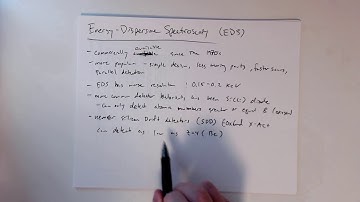 Energy-Dispersive Spectroscopy (EDS)
- commercially available since the 1970s
- more popular - simple design, less moving parts, faster scans,
Parallel detection
- EDS has worse resolution : 0.15-0.2 KeV
- more common detector Materials are been Si(Li) diode
- can only detect atomic numbers greater or equal 8 (
- newer Silicon Drift detectors (SDD) 
can detect as low as Z=4 (Be)